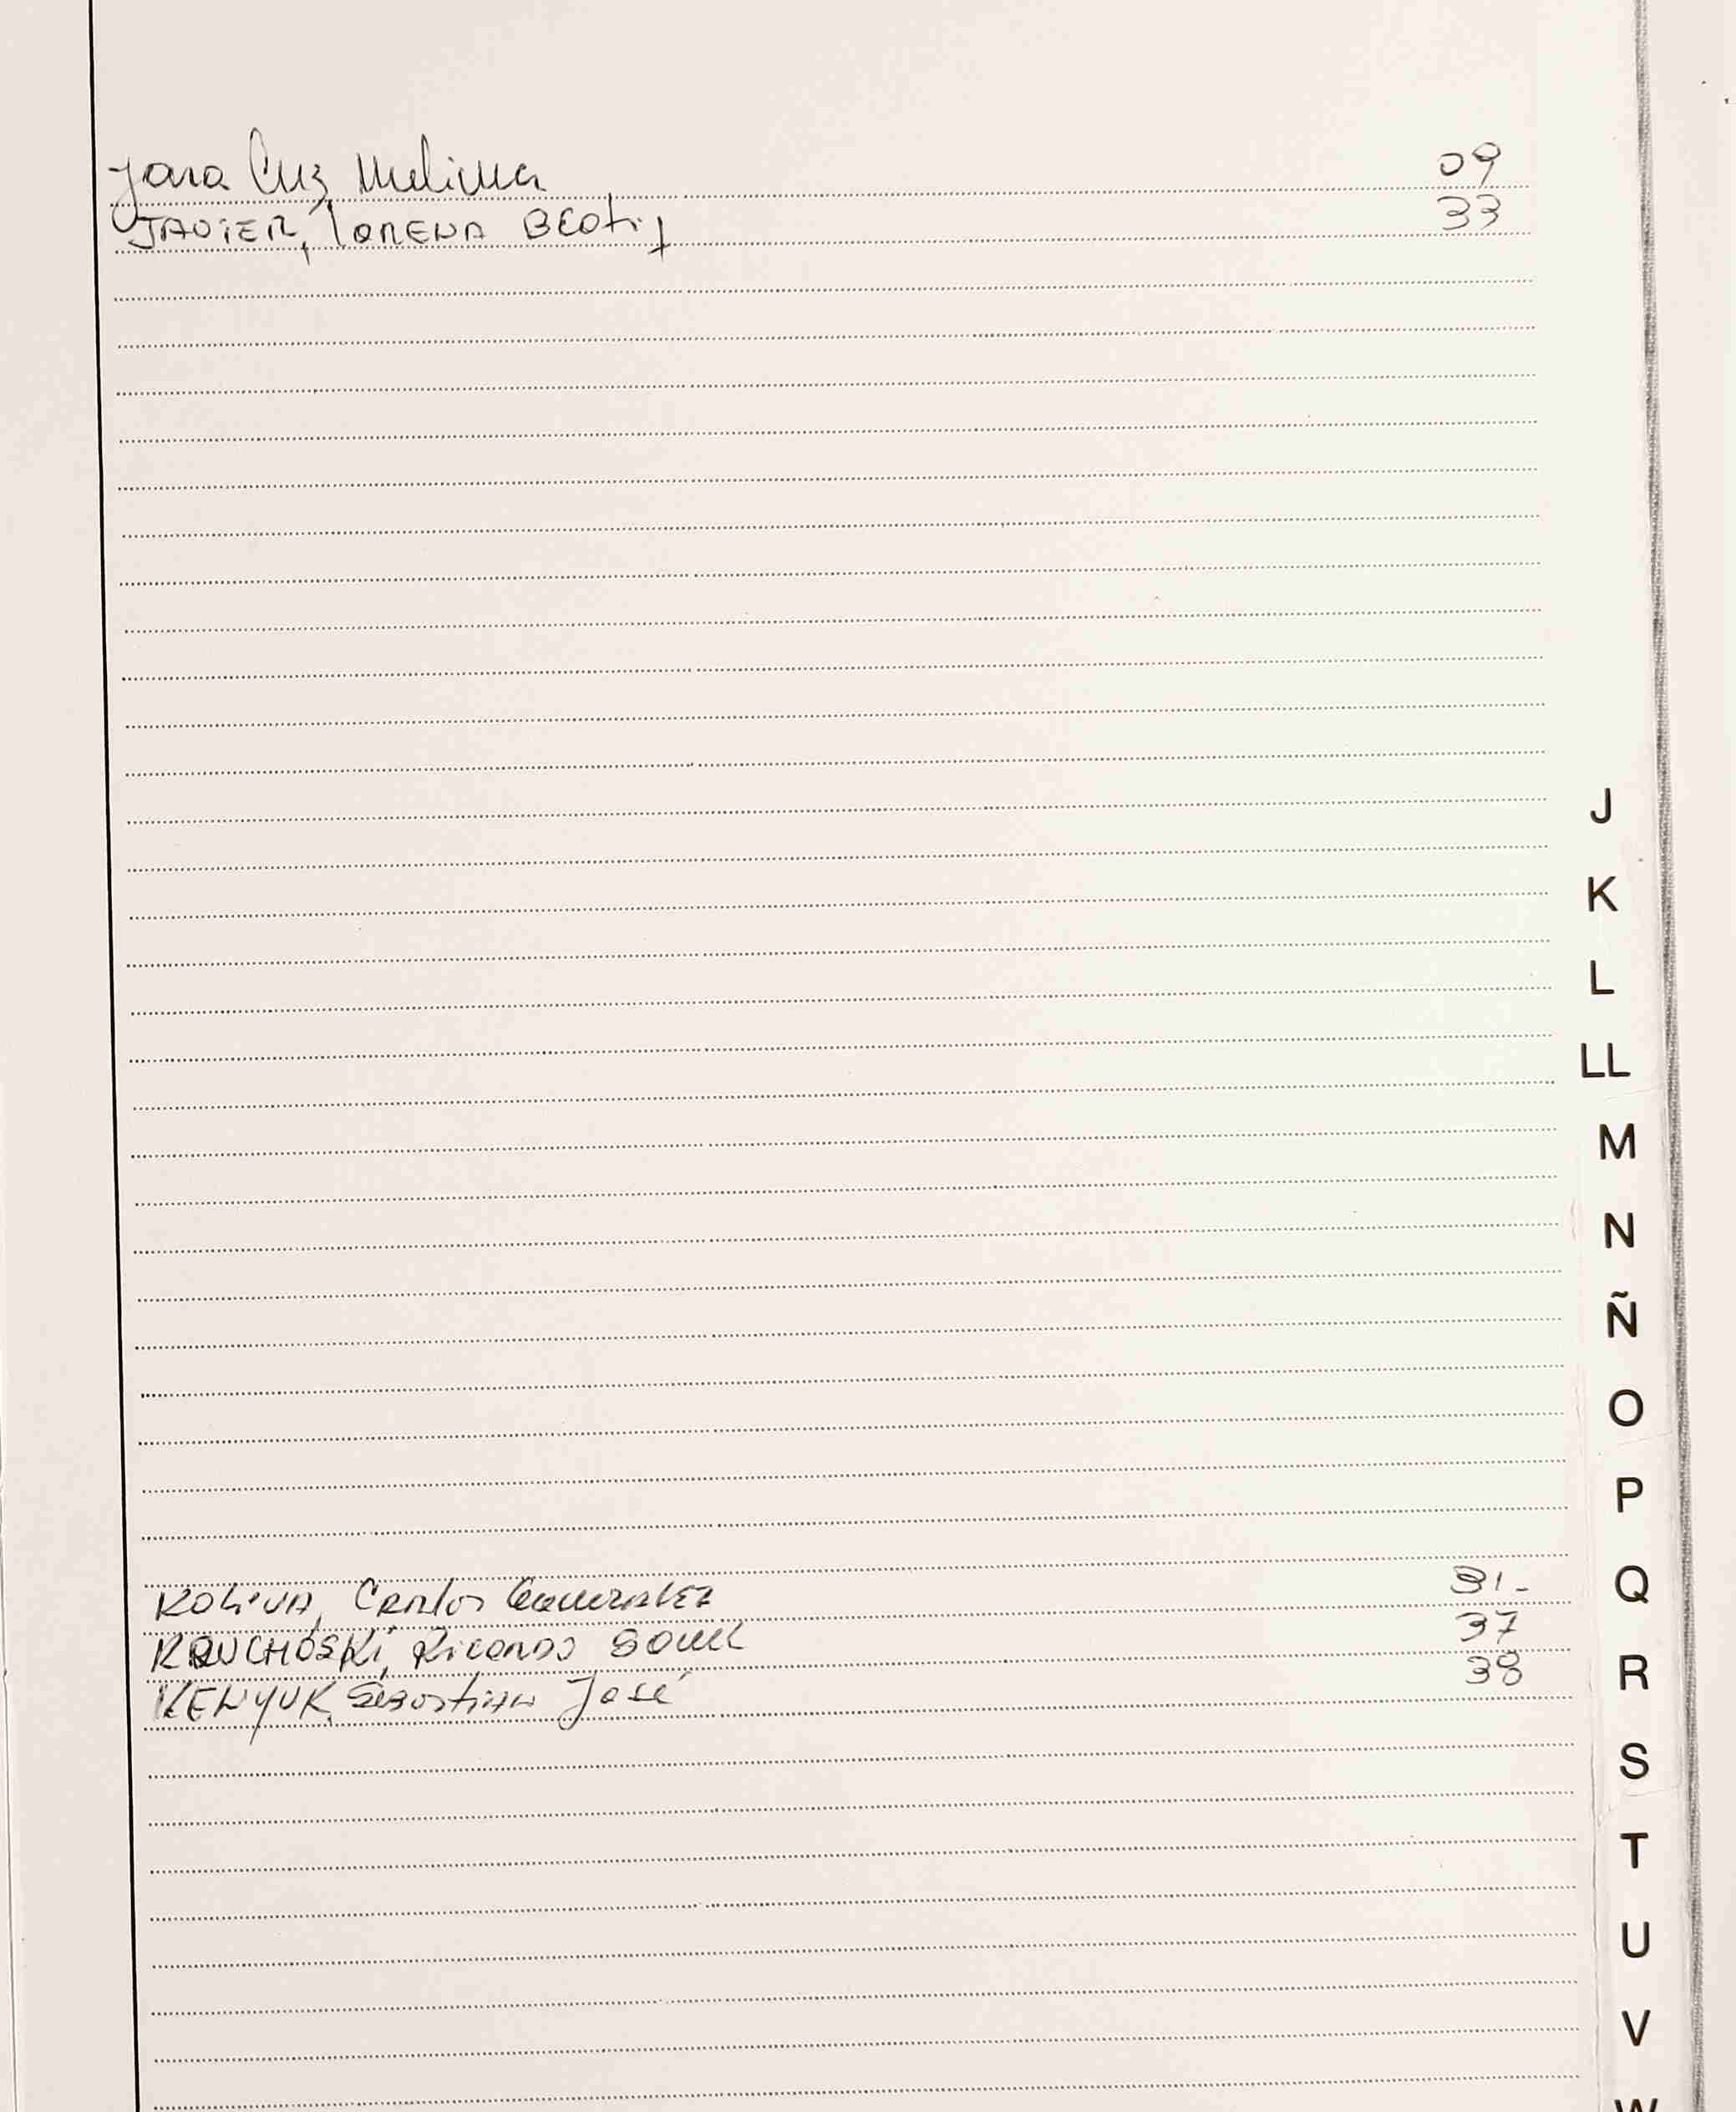 Jara Cruz Melina 09
JAVIER, LORENA BEATriz 33
J
K
L
LL
M
N
Ñ
O
P
Q
R
S
T
U
V
W
KOLIVA, Carlos 31-
Ricardo 37
KENYUK, Sebastian José 38